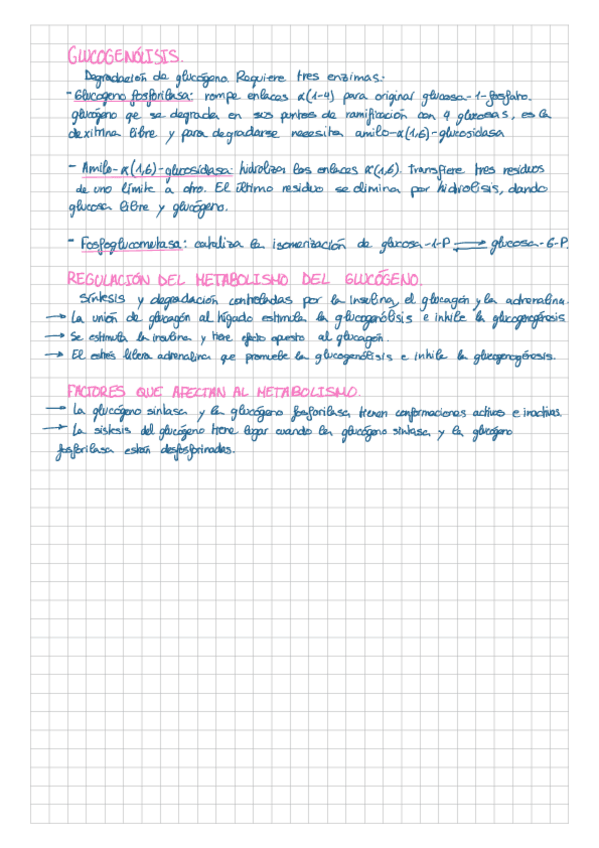 GLUCOGENÓLISIS.
Degradación de glucógeno. Requiere tres enzimas:
- Glucógeno fosforilasa: rompe enlaces α(1-4) para original glucosa-1-fosfato.
glucógeno qe se degrada en sus puntos de ramificación con 4 glucosas, es la
dextrina libre y para degradarse necesita amilo-α(1,6)-glucosidasa
- Amilo-α(1,6)-glucosidasa: hidroliza los enlaces α(1,6). transfiere tres residuos
de uno límite a otro. El último residuo se elimina por hidrolisis, dando
glucosa libre y glucógeno.
- Fosfoglucomutasa: cataliza la isomerización de glucosa-1-P ⇌ glucosa-6-P.
REGULACIÓN DEL METABOLISMO DEL GLUCÓGENO.
Síntesis y degradación controladas por la insulina, el glucagón y la adrenalina.
→ La unión de glucagón al hígado estimula la glucogenólisis e inhibe la glucogenogénesis
→ Se estimula la insulina y tiene efecto opuesto al glucagón.
→ El estrés libera adrenalina que promueve la glucogenólisis e inhibe la glucogenogénesis.
FACTORES QUE AFECTAN AL METABOLISMO.
→ La glucógeno sintasa y la glucógeno fosforilasa, tienen conformaciones activas e inactivas.
→ La síntesis del glucógeno tiene lugar cuando la glucógeno sintasa y la glucógeno
fosforilasa están desfosforinadas.